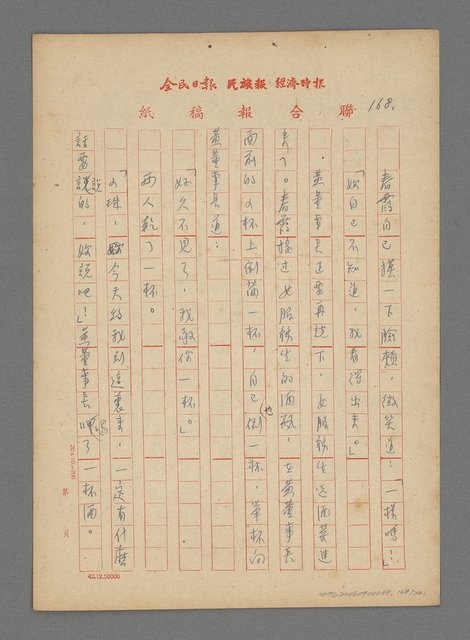 全民日報 民族報 經濟時報
聯合報稿紙
168.
春霞自己摸一下臉頰，微笑道：「一樣嗎！」
「妳自己不知道，我看得出來。」
黃董事長正要再說下，女服務生送酒菜進
來了。春霞接過女服務生的酒瓶，在黃董事長
面前的小杯上倒滿一杯，自己也倒一杯，舉杯向
黃董事長道：
「好久不見了，我敬你一杯。」
兩人乾了一杯。
「小珠，妳今天約我到這裏來，一定有什麼
話要說的，妳說吧！」黃董事長喝了一杯酒。
20×10=200
第 頁
42.12.50000